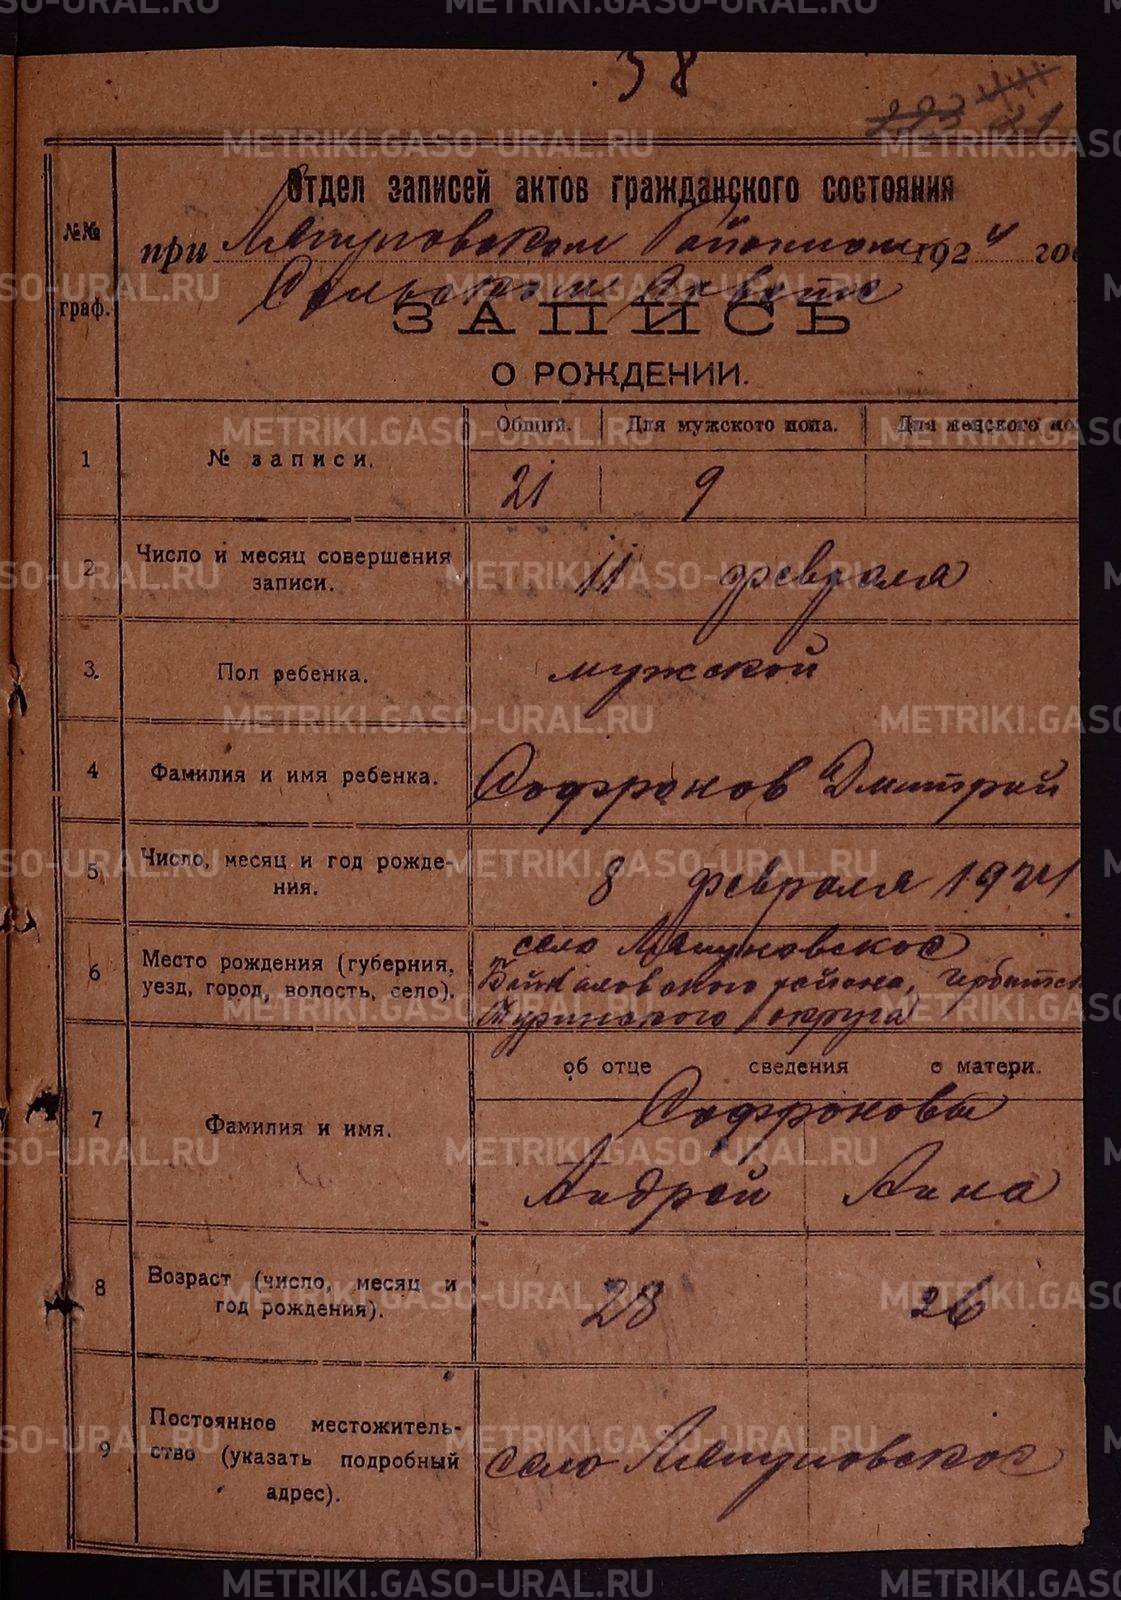 38
223 441 21
Отдел записей актов гражданского состояния
при Ляпуновском Районном 1924 го
Сельском Совете
ЗАПИСЬ
О РОЖДЕНИИ.
№№ граф.
Общий. Для мужского пола. Для женского по
1 № записи. 21 9
2 Число и месяц совершения записи. 11 февраля
3. Пол ребенка. мужской
4 Фамилия и имя ребенка. Софронов Дмитрий
5 Число, месяц и год рожде-
ния. 8 февраля 1924
6 Место рождения (губерния,
уезд, город, волость, село).
село Ляпуновское
Байкаловского района, Ирбитск
округа
об отце сведения о матери.
7 Фамилия и имя. Софроновы
Андрей Анна
8 Возраст (число, месяц и
год рождения). 28 26
9 Постоянное местожитель-
ство (указать подробный
адрес). село Ляпуновское
METRIKI.GASO-URAL.RU